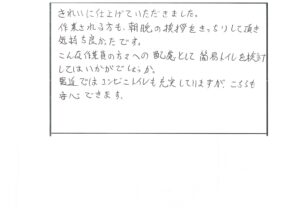 きれいに仕上げていただきました。
作業される方も、朝晩の挨拶をきっちりして頂き
気持ち良かったです。
こんな作業員の方々への配慮として簡易トイレを検討
してはいかがでしょうか。
最近ではコンビニトイレも充実していますが、こちらも
安心できます。